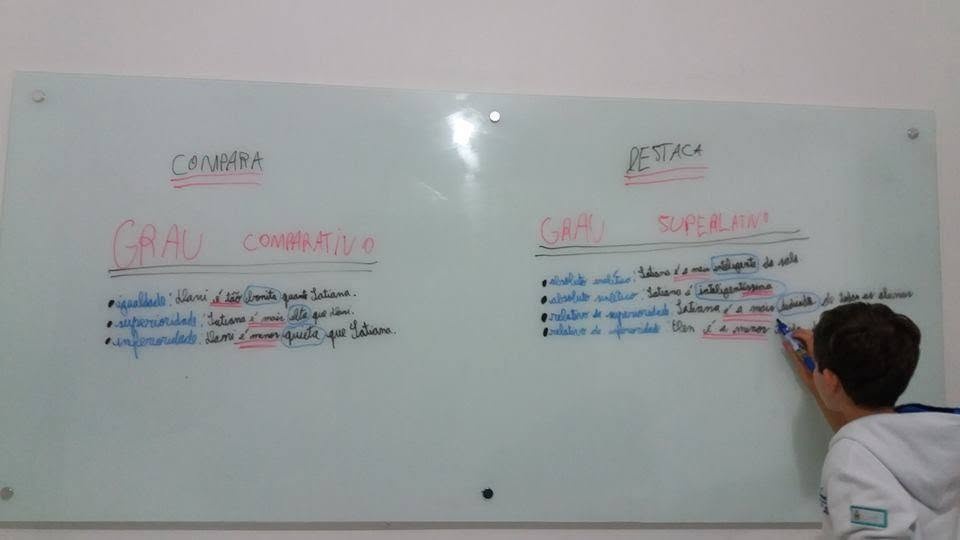 COMPARA
GRAU COMPARATIVO
• igualdade: Dani é tão bonita quanto Tatiana.
• superioridade: Tatiana é mais alta que Dani.
• inferioridade: Dani é menos quieta que Tatiana.
DESTACA
GRAU SUPERLATIVO
• absoluto analítico: Tatiana é a mais inteligente da sala
• absoluto sintético: Tatiana é inteligentíssima
• relativo de superioridade: Tatiana é a mais de todos os alunos
• relativo de inferioridade: Elen é a menos